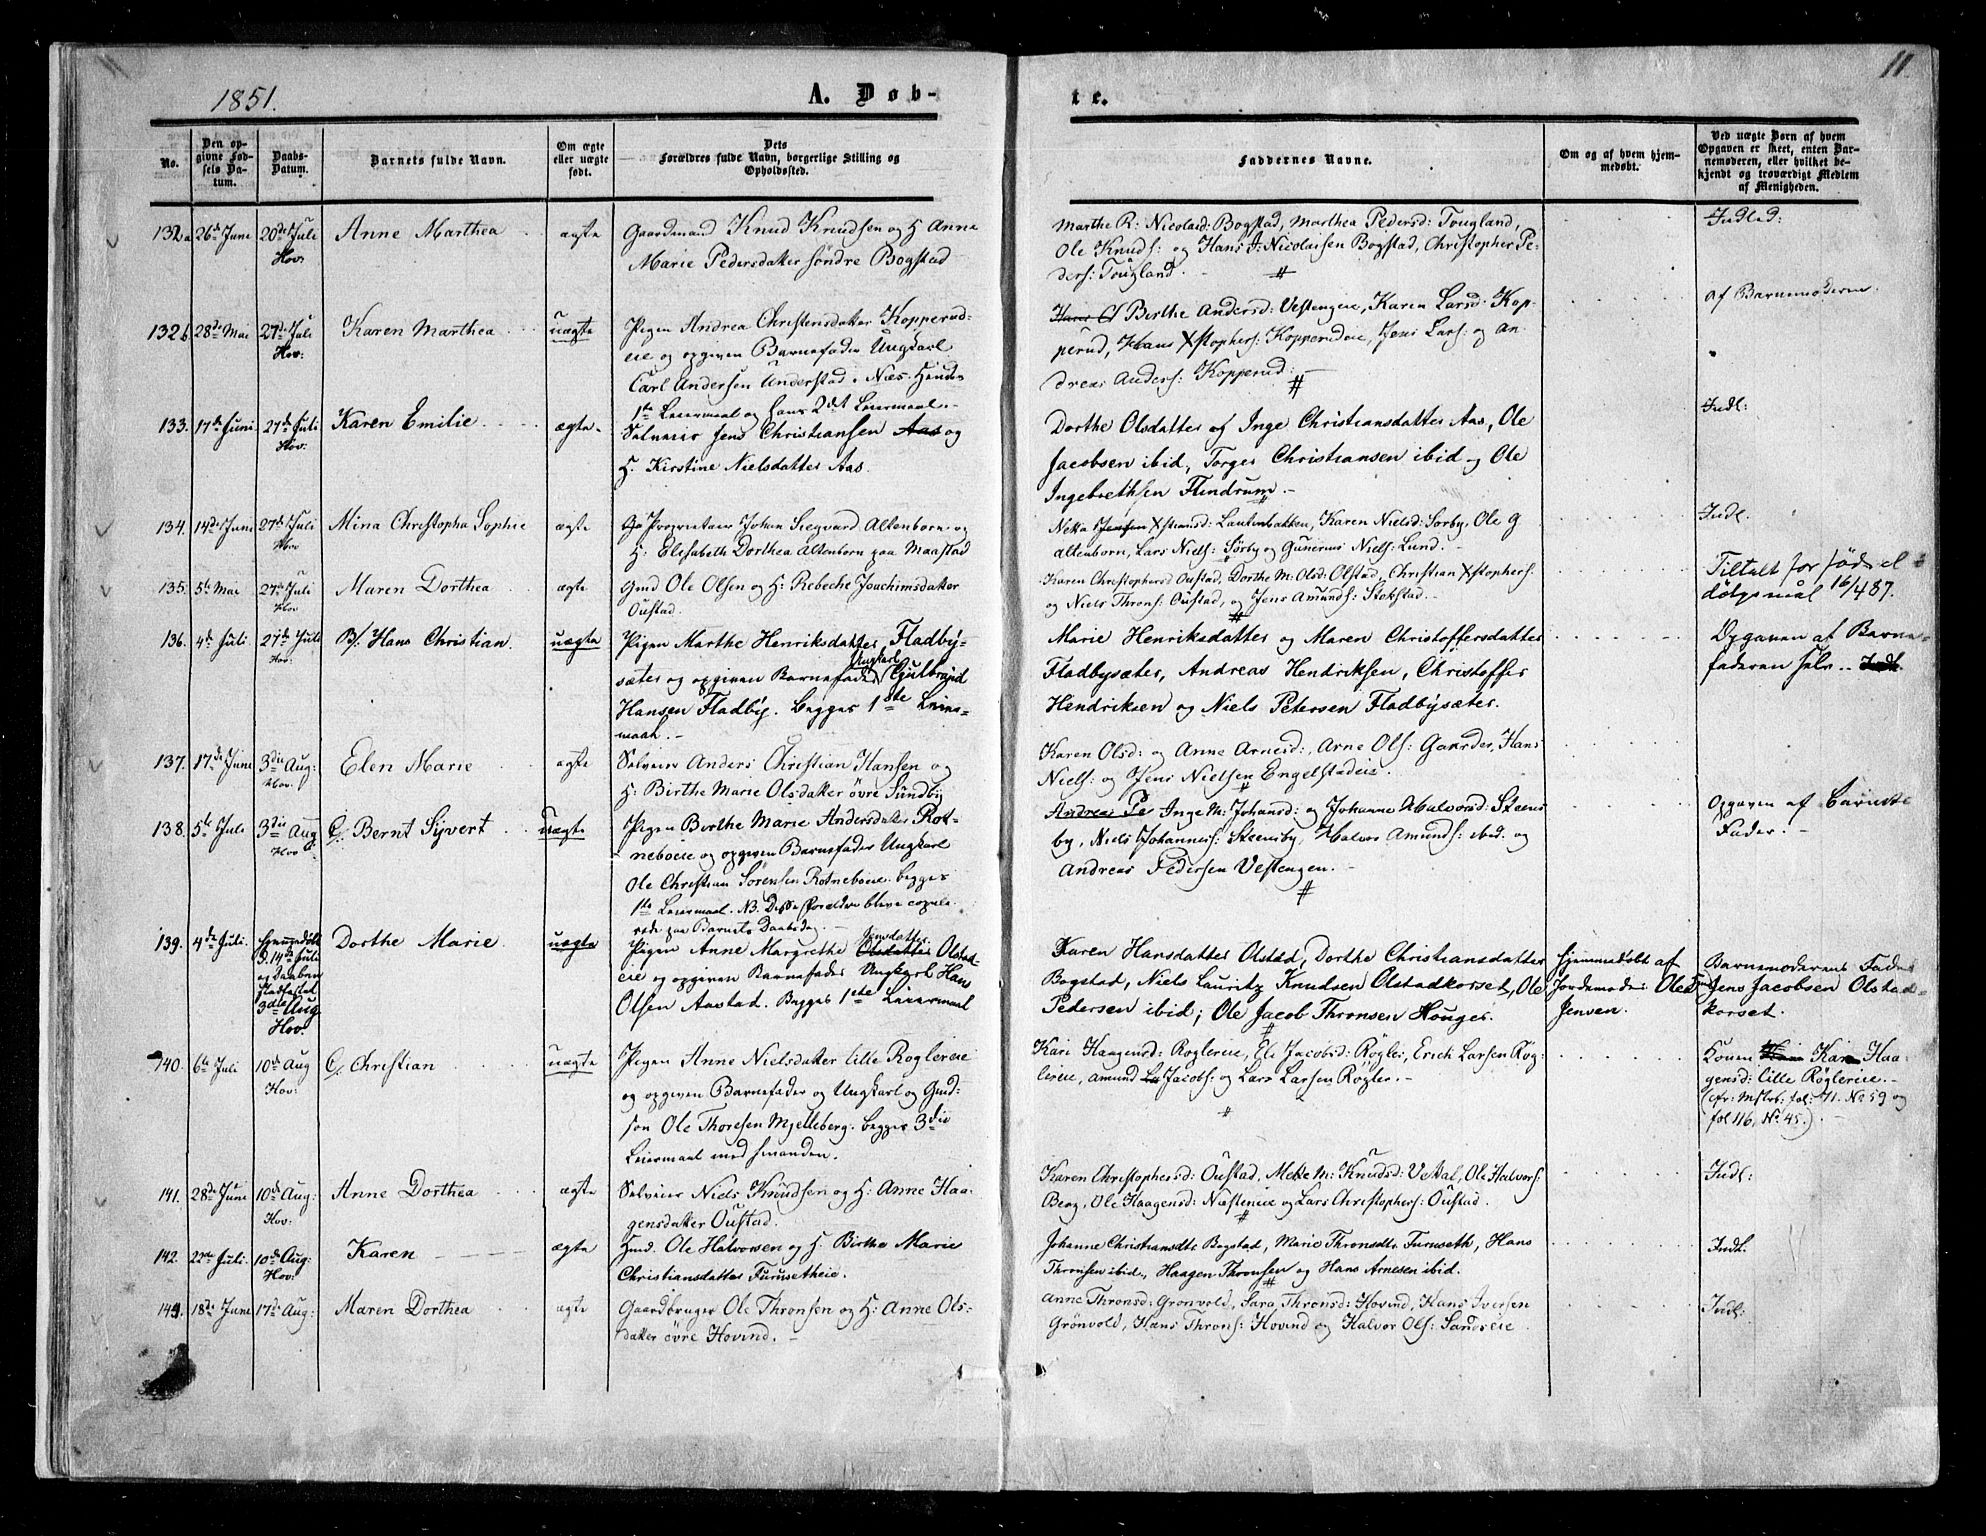 1851.
A. Døb-
te.
11.
No.
Den op-
givne Fød-
sels Da-
tum.
Daabs-
Datum.
Barnets fulde Navn.
Om ægte
eller uægte
født.
Dets
Forældres fulde Navn, borgerlige Stilling og
Opholdssted.
Faddernes Navne.
Om og af hvem hjem-
medøbt.
Ved uægte Børn af hvem
Opgaven er skeet, enten Bar-
nemoderen, eller hvilket be-
kjendt og troværdigt Medlem
af Menigheden.
132a 26de June 20de Juli Hov: Anne Marthea ægte
Gaardmand Knud Knudsen og H. Anne
Marie Pedersdatter søndre Bogstad
Marthe R: Nicolaid: Bogstad, Marthea Pedersd: Tougland,
Ole Knuds: og Hans J: Nicolaisen Bogstad, Christopher Pe-
ders: Tougland.
Indled:
132b 28de Mai 27de Juli Hov: Karen Marthea uægte
Pigen Andrea Christensdatter Kopperud-
eie og opgiven Barnefader Ungkarl
Carl Andersen Understad i Næs. Hendes
1ste Leiermaal og hans 2det Leiermaal.
Birthe Andersd: Vestengeie, Karen Larsd: Kop-
perud, Hans Xstophers: Kopperudeie, Jens Lars: og An-
dreas Anders: Kopperud:
af Barnemoderen.
133. 17de Juni 27de Juli Hov. Karen Emilie ægte
Selveier Jens Christiansen Aas og
H. Kirstine Nielsdatter Aas.
Dorthe Olsdatter af Inge Christiansdatter Aas, Ole
Jacobsen ibid, Torger Christiansen ibid og Ole
Ingebrethsen Flindrum.
Indl:
134. 14de June 27de Juli Hov Mina Christopha Sophie ægte
Proprietær Johan Siegvard Altenborn og
H: Elisabeth Dorthea Altenborn paa Maastad
Xstiansd: Lautenbakken, Karen Nielsd: Sørby, Ole G
Altenborn, Lars Niels: Sørby og Gunerius Niels: Lund.
Indl.
135. 5te Mai 27de Juli Hov Maren Dorthea ægte
Gmd Ole Olsen og H: Rebeche Joachimsdatter
Oustad.
Karen Christophersd Oustad, Dorthe M: Olsd: Olstad, Christian Xstophers:
og Niels Throns: Oustad, og Jens Amunds: Stokstad.
Tiltalt for fødsel i
dølgsmål 16/4 87.
136. 4de Juli 27de Juli Hov: B/. Hans Christian. uægte
Pigen Marthe Henriksdatter Fladby-
sæter og opgiven Barnefader Ungkarl Gulbrand
Hansen Fladby. Begges 1ste Leier-
maal.
Marie Henriksdatter og Maren Christoffersdatter
Fladbysæter, Andreas Hendriksen, Christoffer
Hendriksen og Niels Petersen Fladbysæter.
Opgaven af Barne-
faderen selv. Indl.
137. 17de June 3die Aug: Hov. Elen Marie ægte
Selveier Anders Christian Hansen og
H: Birthe Marie Olsdatter øvre Sundby
Karen Olsd: og Anne Arnesd:, Arne Ols: Gaarder, Hans
Niels: og Jens Nielsen Engelstadeie.
138. 5te Juli 3die Aug Hov C/. Bernt Syvert uægte
Pigen Berthe Marie Andersdatter Rot-
neboeie og opgiven Barnefader Ungkarl
Ole Christian Sørensen Rotneboeie. begges
1ste Leiermaal. NB. Disse Forældre bleve copule-
rede paa Barnets Daabsdag.
Andreas Pe Inge M: Johansd: og Johanne Halvorsd: Steens-
by, Niels Johannes: Steensby, Halvor Amunds: ibid. og
Andreas Pedersen Vestengen.
Opgaven af Barnets
Fader.
139. 4de Juli. Hjemmedøbt
d. 14de Juli
og Daaben
stadfæstet
3die Aug
Hov: Dorthe Marie uægte
Pigen Anne Margrethe Jensdatter Olsdatter Olstad-
eie og opgiven Barnefader Ungkarl Hans
Olsen Aastad. Begges 1ste Leiermaal
Karen Hansdatter Olstad, Dorthe Christiansdatter
Bogstad, Niels Lauritz Knudsen Olstadkorset, Ole
Pedersen ibid; Ole Jacob Thronsen Houger.
Hjemmedøbt af
Jordemoder Oled
Jensen.
Barnemoderens Fader
Jens Jacobsen Olstad-
korset.
140. 6te Juli 10de Aug Hov: C/. Christian uægte
Pigen Anne Nielsdatter lille Roglereie
og opgiven Barnefader og Ungkarl og Gmd:
søn Ole Thoresen Mjelleberg. begges 3die
Leiermaal med hinanden.
Kari Haagensd: Roglereie, Eli Jacobsd: Røgler, Erich Larsen Røg-
lereie, Amund Jacobs: og Lars Larsen Røgler.
Konen Kari Haa-
gensd: lille Røglereie.
(cfr: Mstrb: fol: 71. No 59 og
fol 116, No 45.)
141. 28de June 10de Aug: Hov: Anne Dorthea ægte
Selveier Niels Knudsen og H: Anne Haa-
gensdatter Oustad.
Karen Christophersd: Oustad, Mette M: Knudsd: Vestal, Ole Halvors:
Berg, Ole Haagensd: Næsteneie og Lars Christophers: Oustad.
Indl:
142. 22de Juli. 10de Aug: Hov: Karen ægte
Hmd. Ole Halvorsen og H. Birthe Marie
Christiansdatter Furusetheie.
Johanne Christiansdtr Bogstad, Marie Thronsdtr Furuseth, Hans
Thronsen ibid., Haagen Thronsen og Hans Arnesen ibid.
Indl.
143. 18de June 17de Aug: Maren Dorthea ægte
Gaardbruger Ole Thronsen og H: Anne Ols-
datter øvre Hovind.
Anne Thronsd: Grønvold, Sara Thronsd: Hovind, Hans Iversen
Grönvold, Hans Throns: Hovind og Halvor Ols: Sandseie
Indl: